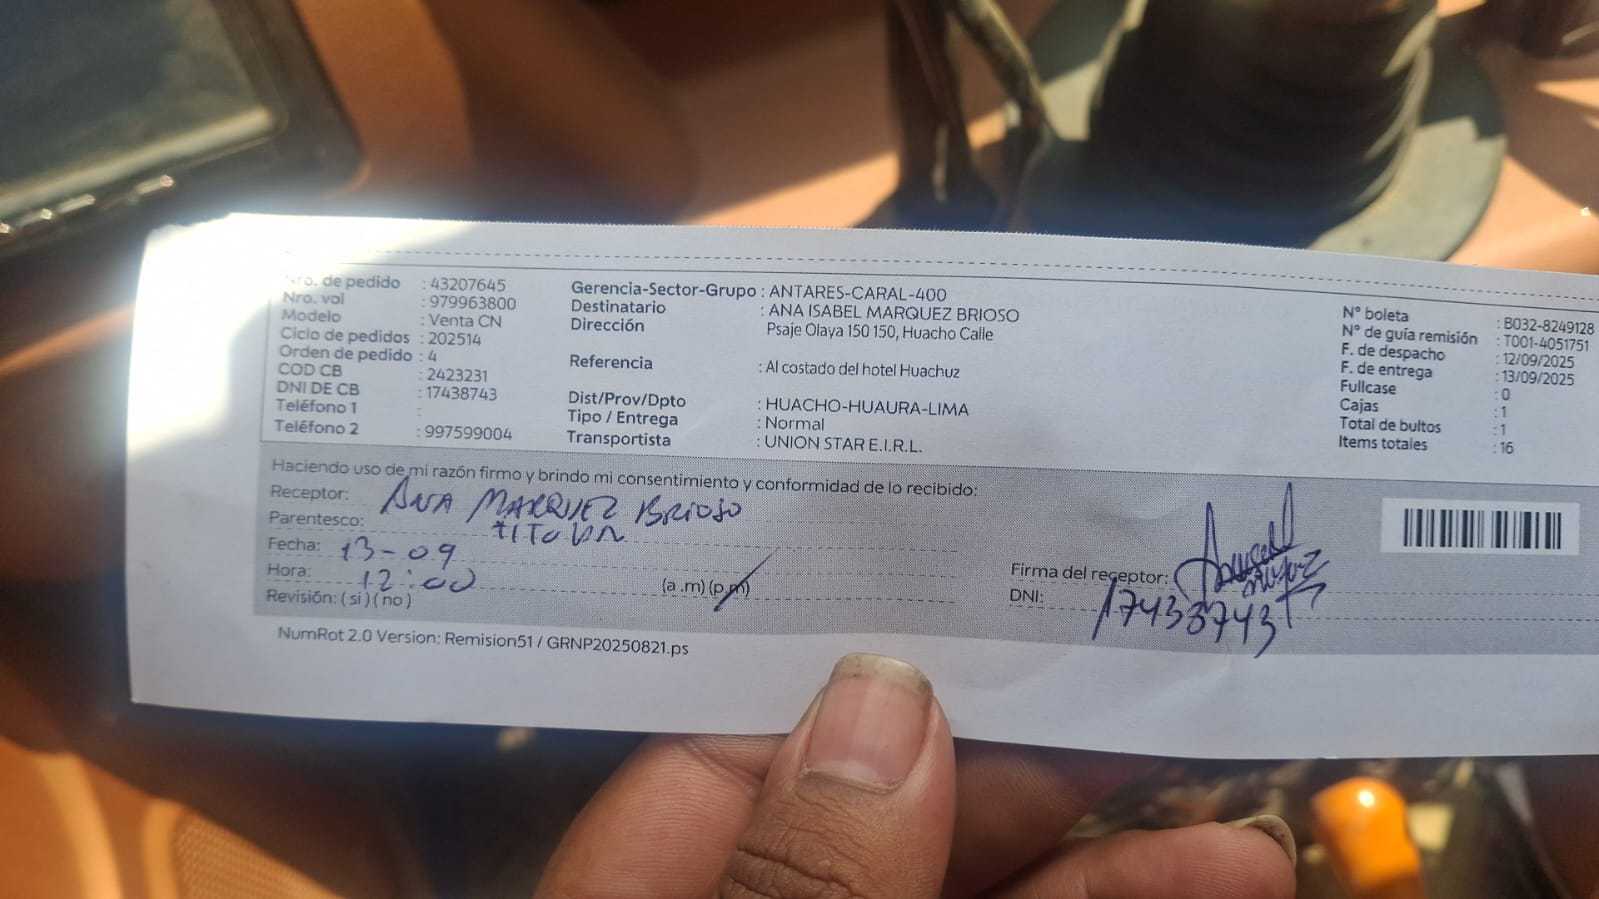 Nro. de pedido : 43207645
Nro. vol : 979963800
Modelo : Venta CN
Ciclo de pedidos : 202514
Orden de pedido : 4
COD CB : 2423231
DNI DE CB : 17438743
Teléfono 1 :
Teléfono 2 : 997599004
Gerencia-Sector-Grupo : ANTARES-CARAL-400
Destinatario : ANA ISABEL MARQUEZ BRIOSO
Dirección Psaje Olaya 150 150, Huacho Calle
Referencia : Al costado del hotel Huachuz
Dist/Prov/Dpto : HUACHO-HUAURA-LIMA
Tipo / Entrega : Normal
Transportista : UNION STAR E.I.R.L.
N° boleta : B032-8249128
N° de guía remisión : T001-4051751
F. de despacho : 12/09/2025
F. de entrega : 13/09/2025
Fullcase : 0
Cajas : 1
Total de bultos : 1
Items totales : 16
Haciendo uso de mi razón firmo y brindo mi consentimiento y conformidad de lo recibido:
Receptor: ANA MARQUEZ BRIOSO
Parentesco:
Fecha: 13-09
Hora: 12:00 (a.m) (p.m)
Revisión: ( si ) ( no )
Firma del receptor:
DNI: 17438743
NumRot 2.0 Version: Remision51 / GRNP20250821.ps